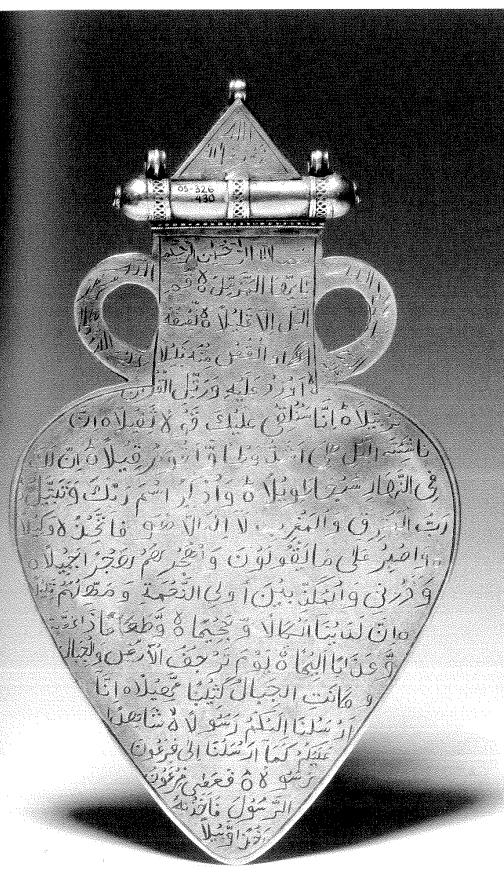 05-326
430
بسم الله الرحمن الرحيم
يا ايها المزمل ه قم
اليل الا قليلا ه نصفه
او انقص منه قليلا
ه اوزد عليه ورتل القران
ترتيلا ه انا سنلقى عليك قولا ثقيلا ه ان
ناشئة اليل هى اشد وطاة واقوم قيلا ه ان لك
فى النهار سبحا طويلا ه واذكر اسم ربك وتبتل
رب المشرق والمغرب لا اله الا هو فاتخذه وكيلا
ه واصبر على ما يقولون واهجرهم هجرا جميلا ه
وذرنى والمكذبين اولى النعمة ومهلهم قليلا
ه ان لدينا انكالا وجحيما ه وطعاما ذا غصة
وعذابا اليما ه يوم ترجف الارض والجبال
وكانت الجبال كثيبا مهيلا ه انا
ارسلنا اليكم رسولا ه شاهدا
عليكم كما ارسلنا الى فرعون
رسولا ه فعصى فرعون
الرسول فاخذناه
اخذا وبيلا